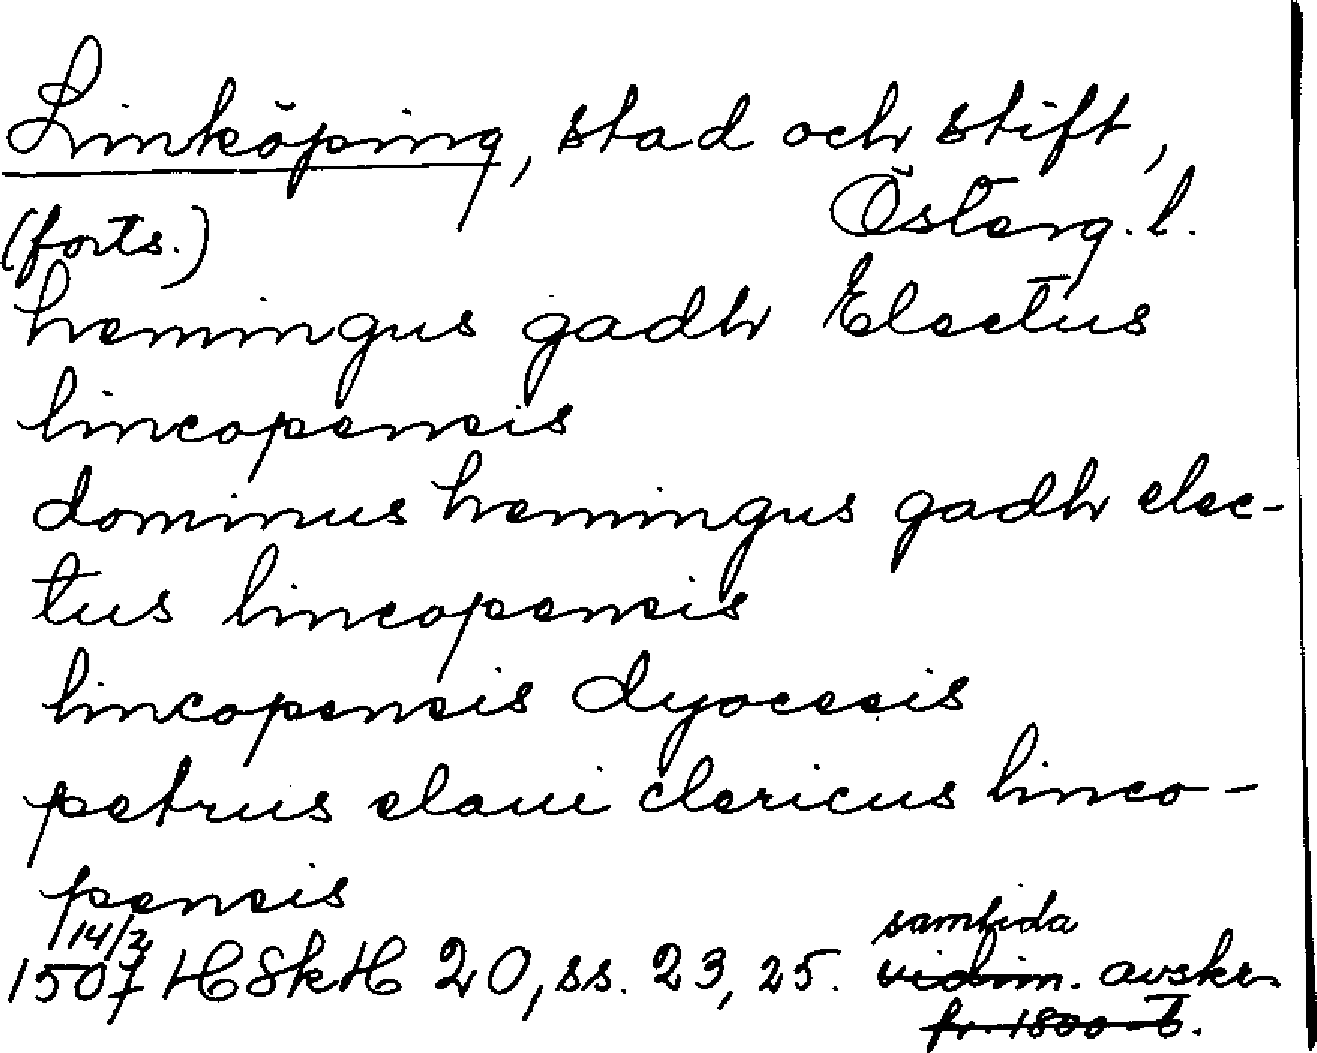 Linköping, stad och stift,
(forts.) Österg. l.
hemingus gadh Electus
lincopensis
dominus hemingus gadh elec-
tus lincopensis
lincopensis dyocesis
petrus olaui clericus linco-
pensis
14/2 samtida
1507 HSkH 20, ss. 23, 25. vidim. avskr.
fr. 1800-t.